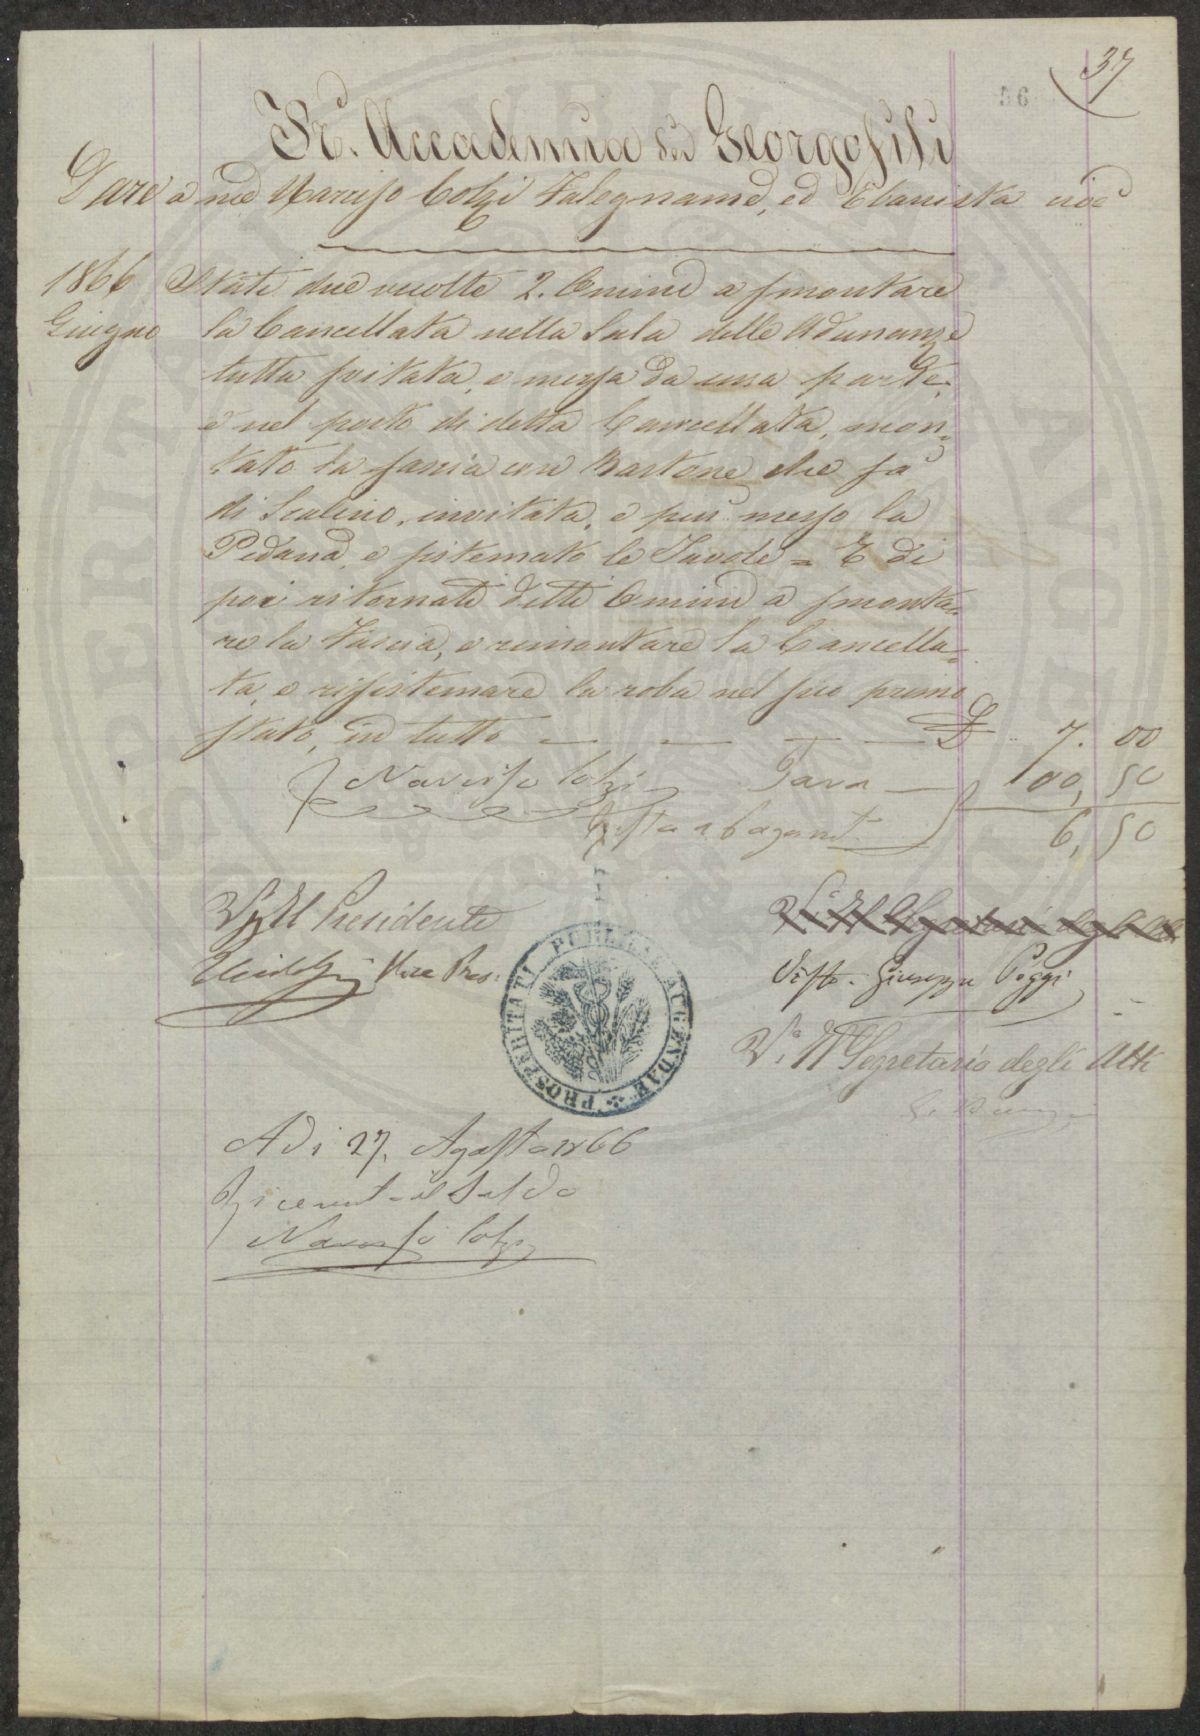 37
56
R. Accademia dei Georgofili
Dare a me Narciso Colzi Falegname, ed Ebanista cioè
1866 Stati due vuolte 2. Omini a smontare
Giugno la Cancellata nella Sala delle Adunanze
tutta svitata, e messa da una parte,
e nel posto di detta Cancellata, mon=
tato la fascia con Bastone che fà
di Scalino, invitata, e più messo la
Pedana, e sistemato le Tavole = E di
poi ritornati detti Omini a smonta=
re la Fascia, e rimontare la Cancella=
ta, e risistemare la roba nel suo primo
stato, in tutto — — — — £ 7. 00
Narciso Colzi Tara — 00, 50
Resta a pagarsi 6, 50
V° Il Presidente
Vice Pres.
V° Il Segretario degli Atti
Visto. Giuseppe Poggi
V° Il Segretario degli Atti
PROSPERITATI PUBLICAE AUGENDAE
A Di 27. Agosto 1866
Ricevuto il Saldo
Narciso Colzi